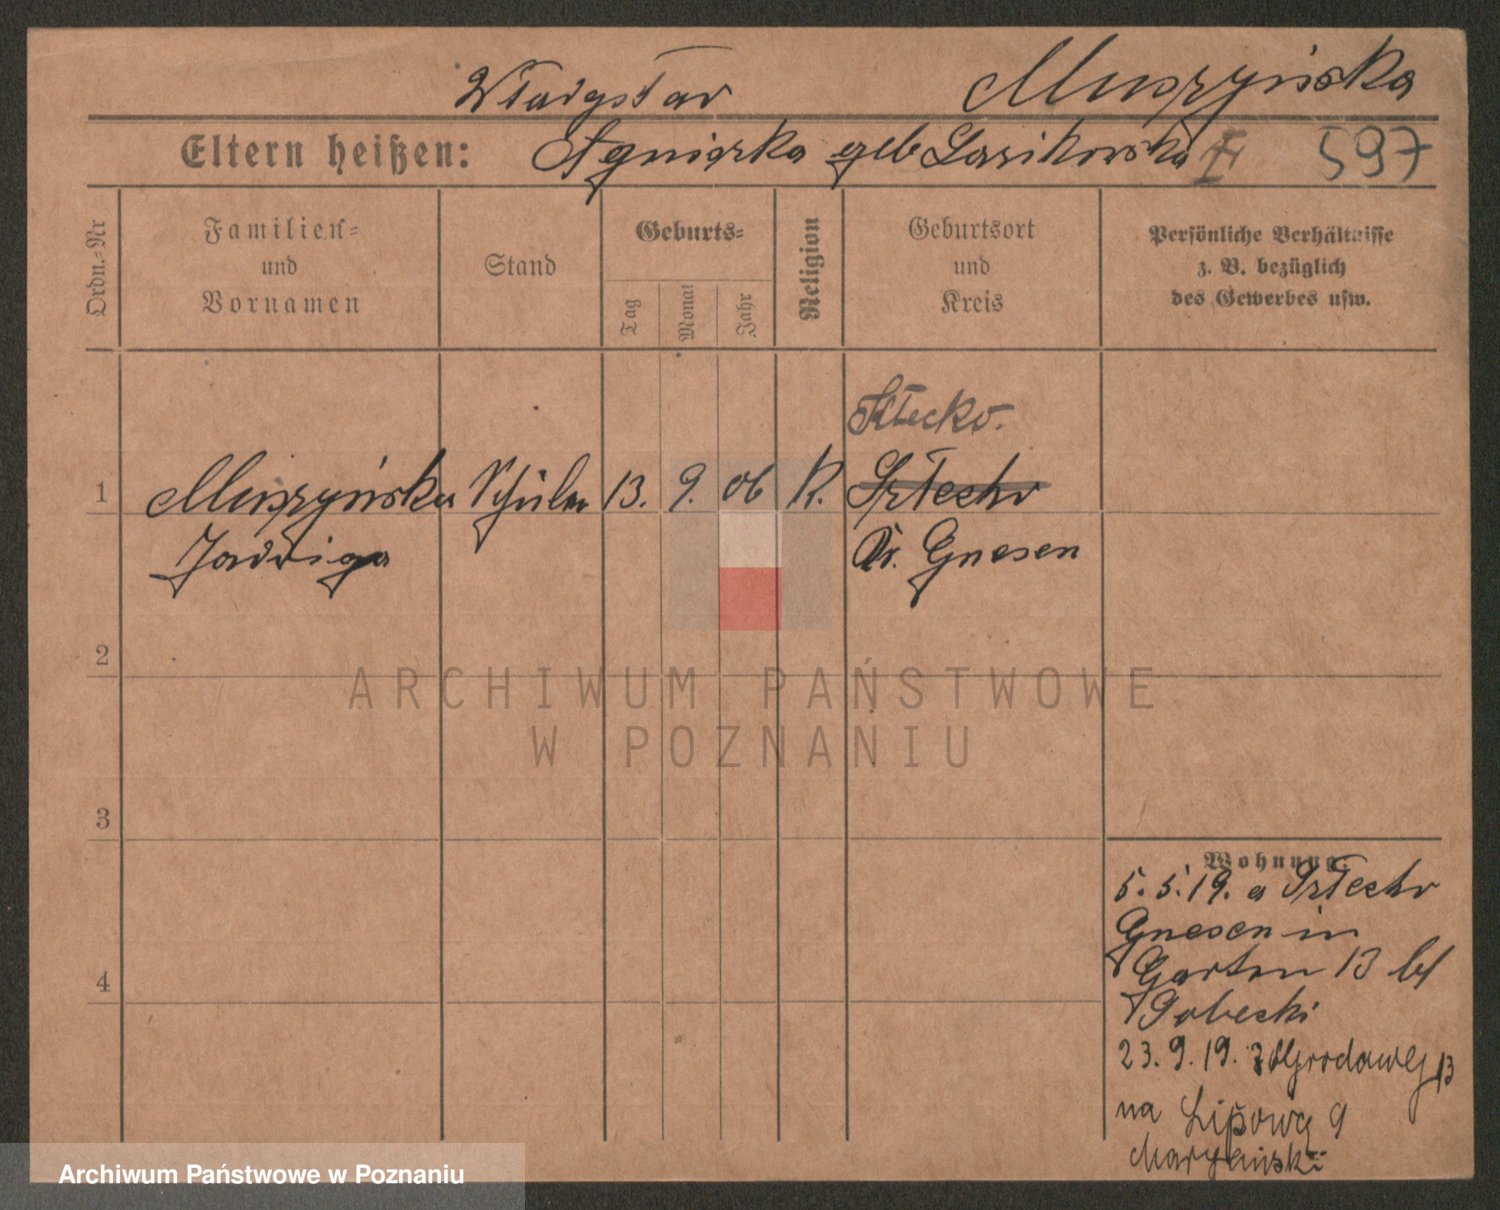 Władysław Muszyńska
Eltern heißen: Agnieszka geb Lasikowska II 597
Ordn.-Nr
Familien-
und
Vornamen
Stand
Geburts-
Tag
Monat
Jahr
Religion
Geburtsort
und
Kreis
Persönliche Verhältnisse
z. B. bezüglich
des Gewerbes usw.
Kłecko.
1 Muszyńska Schüler 13. 9. 06 K.
Jadwiga Kr. Gnesen
2
ARCHIWUM PAŃSTWOWE
W POZNANIU
3
Wohnung:
5.5.19. a
Gnesen in
4 Garten 13 bei
23.9.19. z Ogrodowej 13
na Lipową 9
Maryański
Archiwum Państwowe w Poznaniu